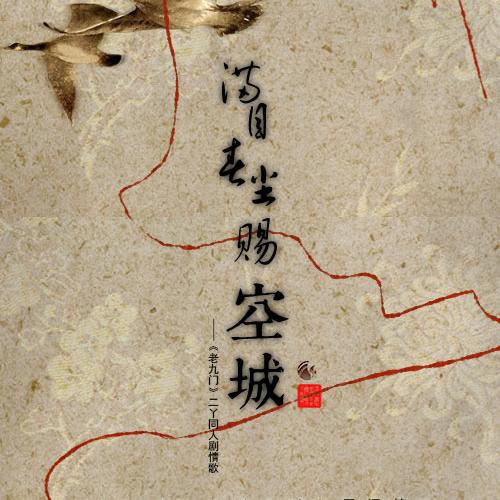 满目春尘赐空城
——《老九门》二丫同人剧情歌